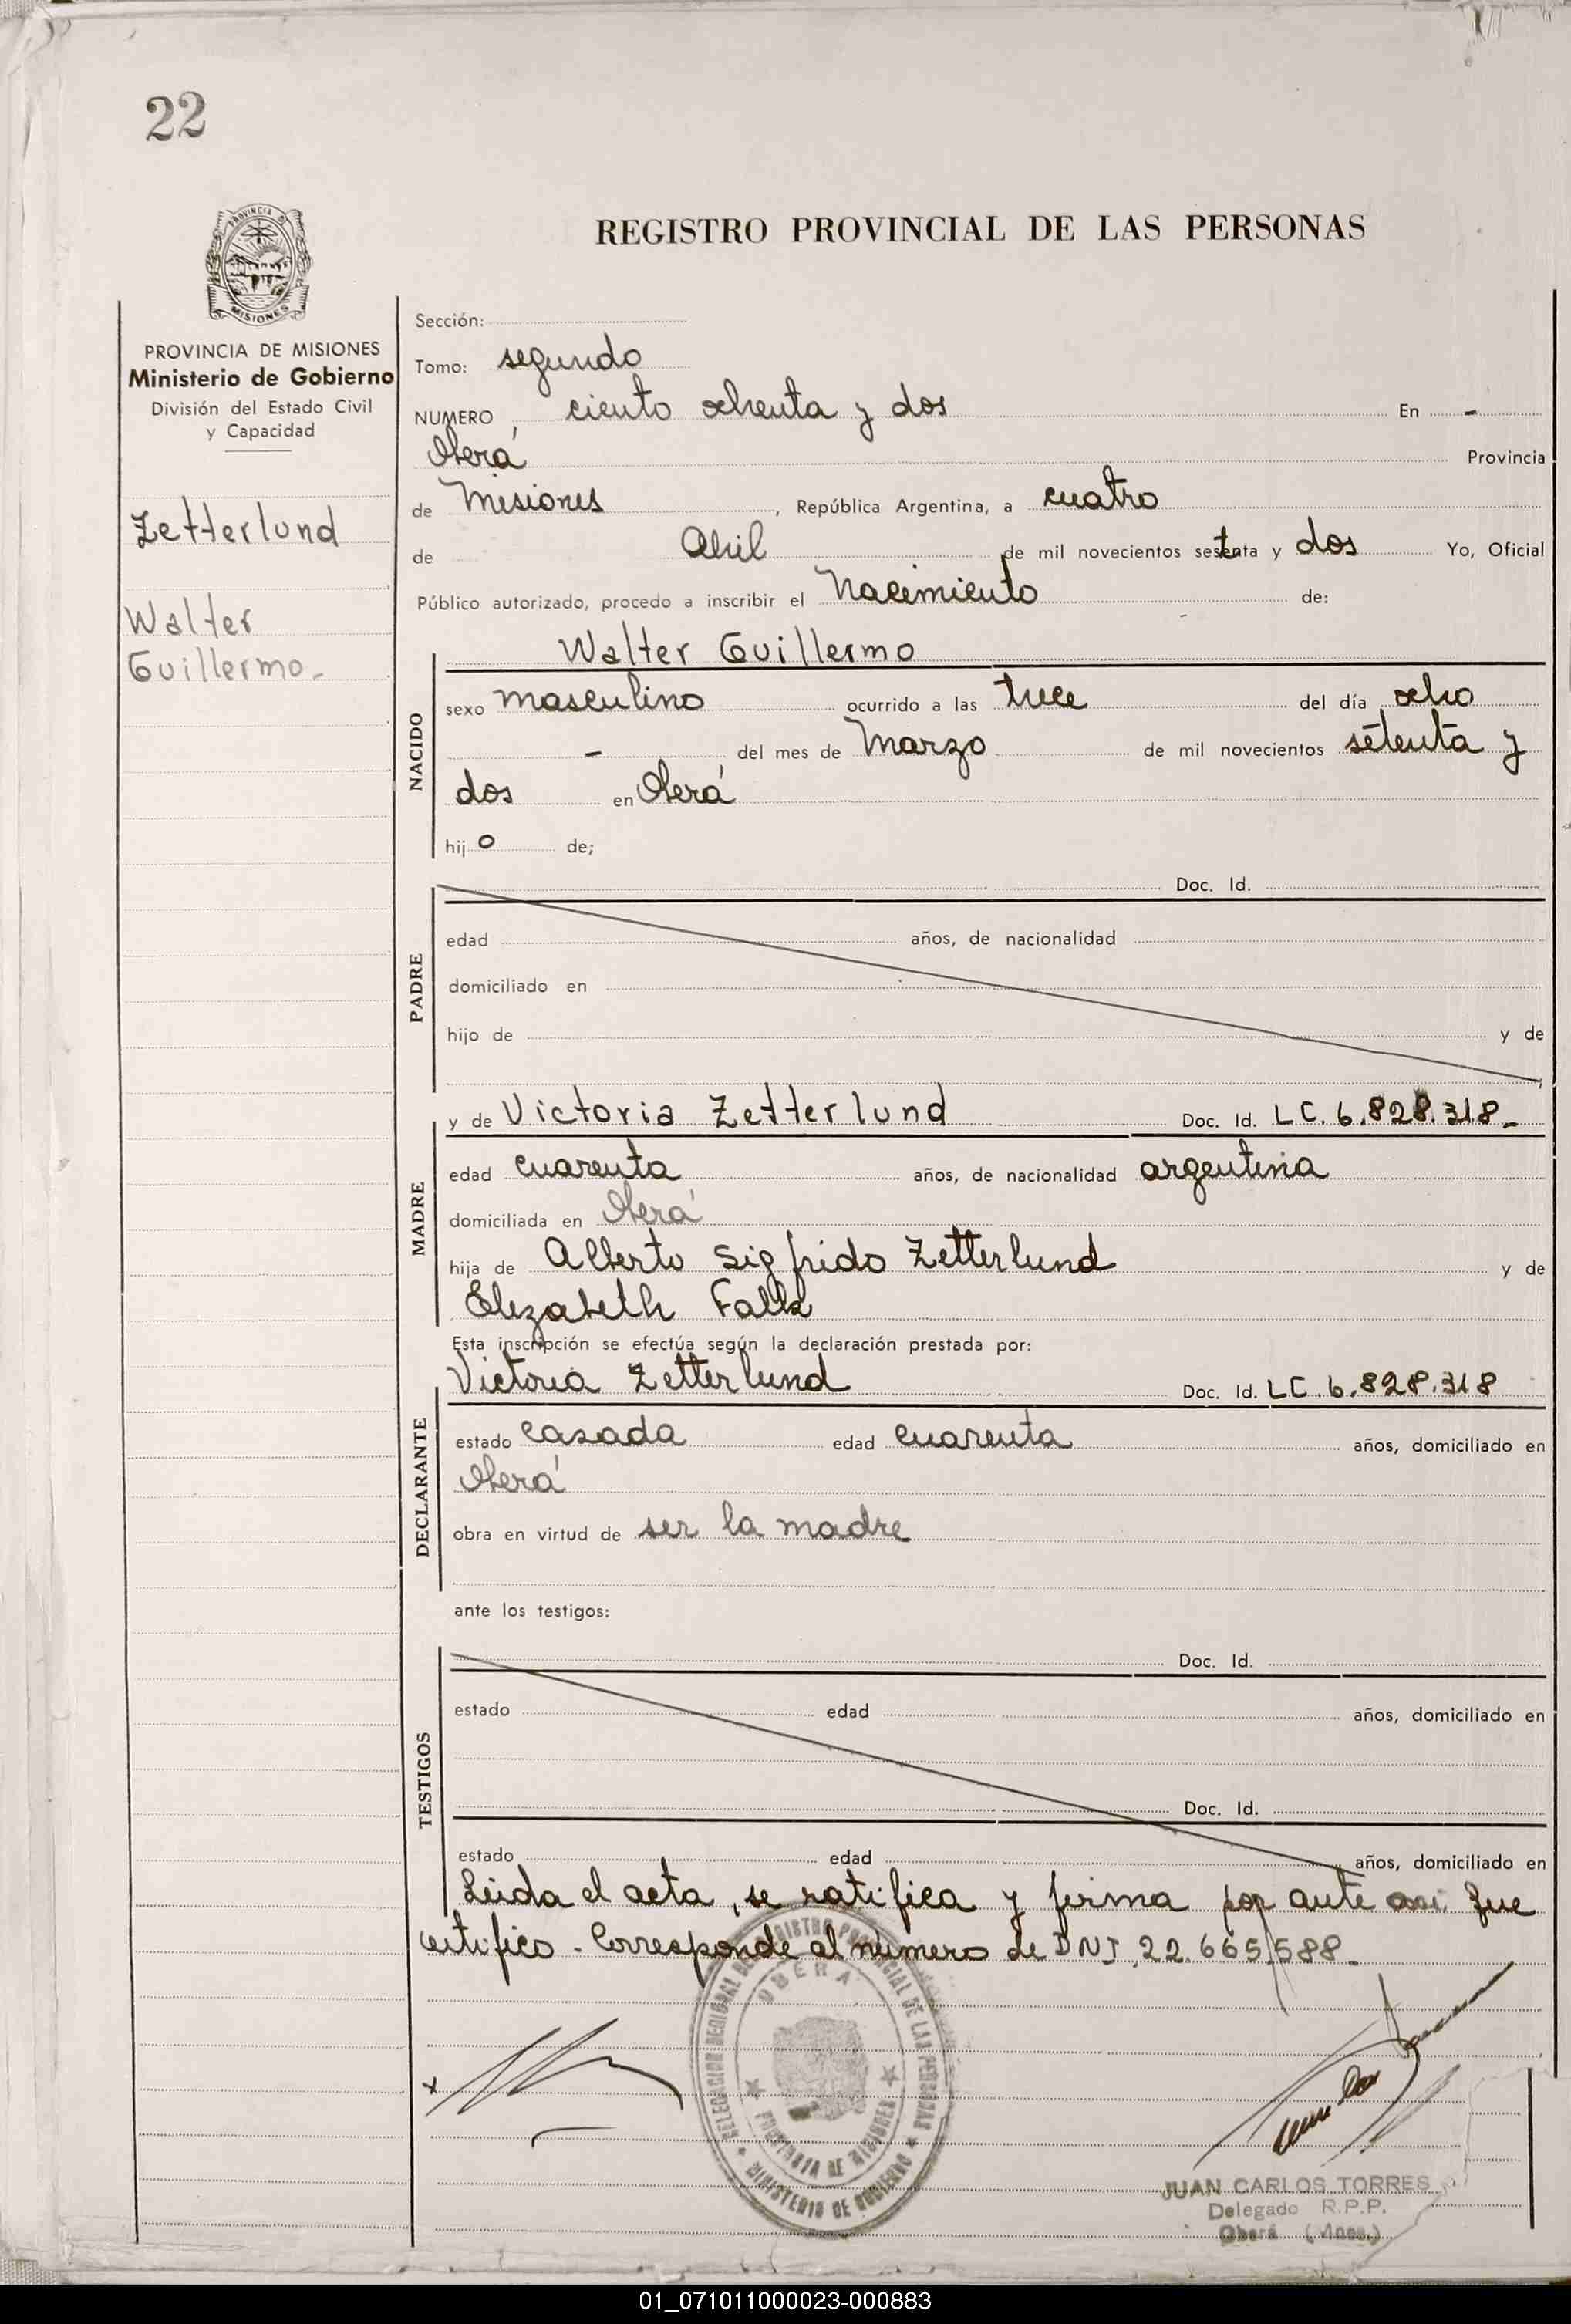 22
REGISTRO PROVINCIAL DE LAS PERSONAS
PROVINCIA DE MISIONES
Ministerio de Gobierno
División del Estado Civil
y Capacidad
Zetterlund
Walter
Guillermo.-
Sección:
Tomo: segundo
NUMERO ciento ochenta y dos En -
Oberá Provincia
de Misiones, República Argentina, a cuatro
de Abril de mil novecientos setenta y dos Yo, Oficial
Público autorizado, procedo a inscribir el Nacimiento de:
NACIDO
Walter Guillermo
sexo masculino ocurrido a las trece del día ocho
- del mes de Marzo de mil novecientos setenta y
dos en Oberá
hijo de;
PADRE
Doc. Id.
edad años, de nacionalidad
domiciliado en
hijo de y de
MADRE
y de Victoria Zetterlund Doc. Id. LC. 6.828.318.-
edad cuarenta años, de nacionalidad argentina
domiciliada en Oberá
hija de Alberto Sigfrido Zetterlund y de
Elizabeth Falk
Esta inscripción se efectúa según la declaración prestada por:
DECLARANTE
Victoria Zetterlund Doc. Id. LC. 6.828.318
estado casada edad cuarenta años, domiciliado en
Oberá
obra en virtud de ser la madre
ante los testigos:
TESTIGOS
Doc. Id.
estado edad años, domiciliado en
Doc. Id.
estado edad años, domiciliado en
Leida el acta, se ratifica y firma por ante mi que
certifico. Corresponde al número de DNI 22.665.588.
DELEGACION REGIONAL DEL REGISTRO PROVINCIAL DE LAS PERSONAS
OBERA
PROVINCIA DE MISIONES
MINISTERIO DE GOBIERNO
JUAN CARLOS TORRES
Delegado R.P.P.
Oberá (Mnes.)
01_071011000023-000883